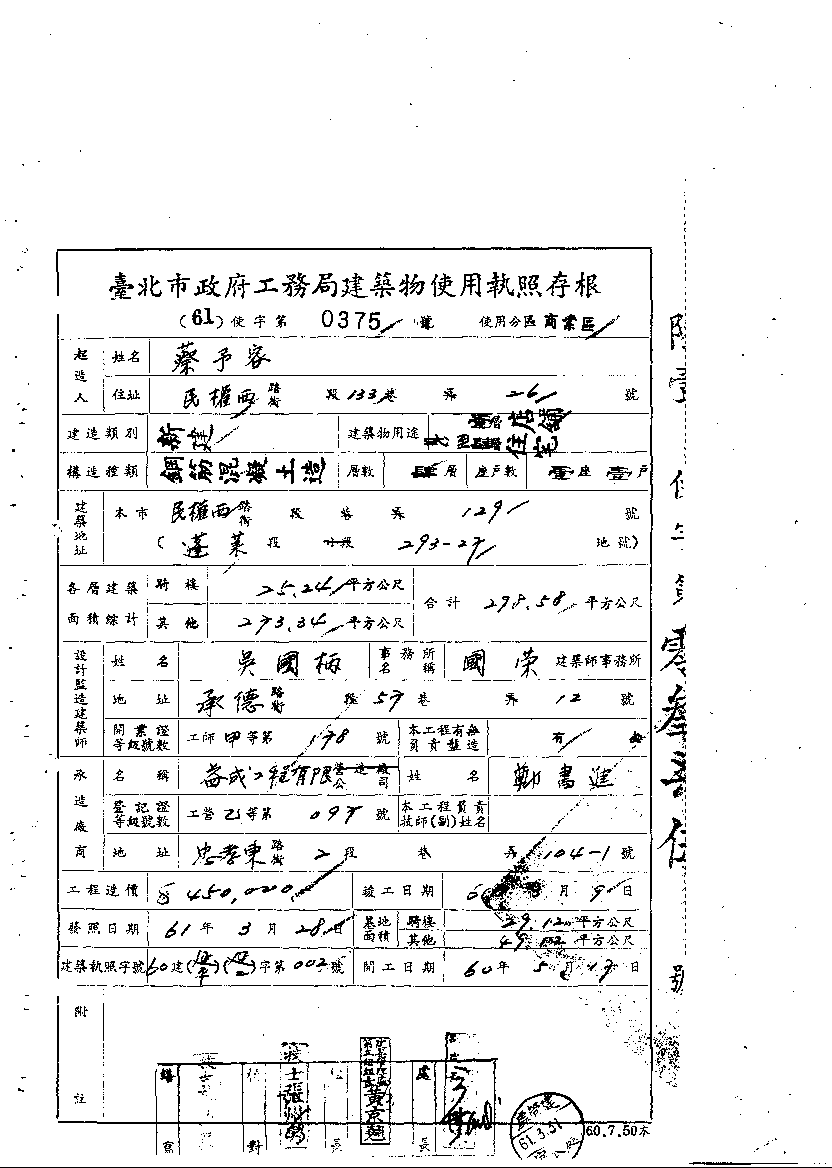 臺北市政府工務局建築物使用執照存根
(61)使字第 0375 號 使用分區 商業區
起造人 姓名 蔡予容
住址 民權西路街 段 133 巷 弄 26 號
建造類別 新建 建築物用途 店鋪 住宅
構造種類 鋼筋混凝土造 層數 層 座戶數 壹座 壹戶
建築地址 本市 民權西路街 段 巷 弄 129 號
(蓬萊段 小段 293-27 地號)
各層建築面積綜計 騎樓 25.24 平方公尺 合計 298.58 平方公尺
其他 273.34 平方公尺
設計監造建築師 姓名 吳國柄 事務所名稱 國榮 建築師事務所
地址 承德路街 段 57 巷 弄 12 號
開業證等級號數 工師甲等第 178 號 本工程有無負責監造 有 無
承造廠商 名稱 益成工程有限營造廠公司 姓名 鄭書進
登記證等級號數 工營乙等第 097 號 本工程負責技師(副)姓名
地址 忠孝東路街 2 段 巷 弄 104-1 號
工程造價 $450,000 竣工日期 60 年 月 9 日
發照日期 61 年 3 月 28 日 基地面積 騎樓 29.12 平方公尺
其他 49. 平方公尺
建築執照字號 60 建( )( )字第 002 號 開工日期 60 年 5 月 17 日
附註
繕寫 校對 長 黃京 處長
技士張
61.3.31
60.7.50本
使字第零叁 號